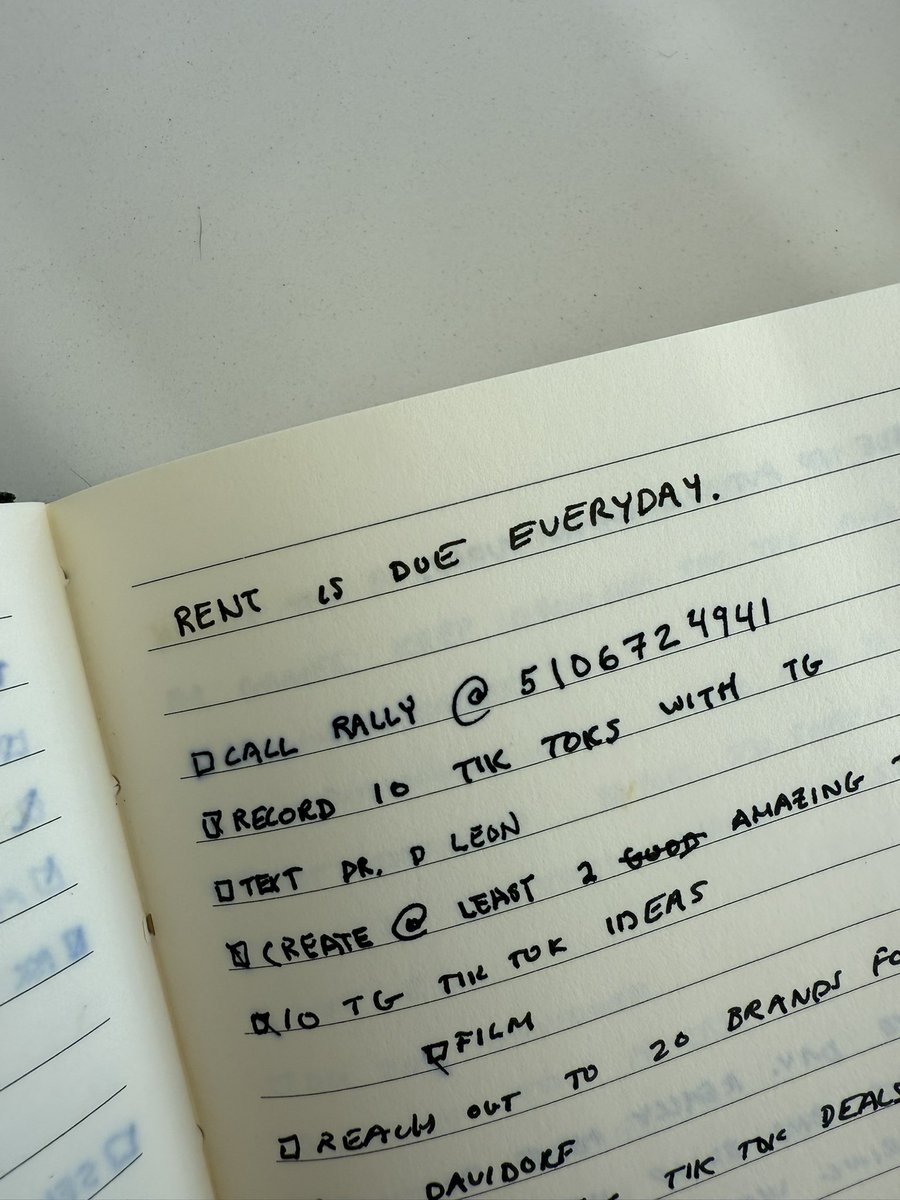 RENT IS DUE EVERYDAY.
CALL RALLY @ 5106724941
RECORD 10 TIK TOKS WITH TG
TEXT DR. D LEON
CREATE @ LEAST 2 GOOD AMAZING
10 TG TIK TOK IDEAS
FILM
REACH OUT TO 20 BRANDS
DAVIDORF
TIK TOK DEALS